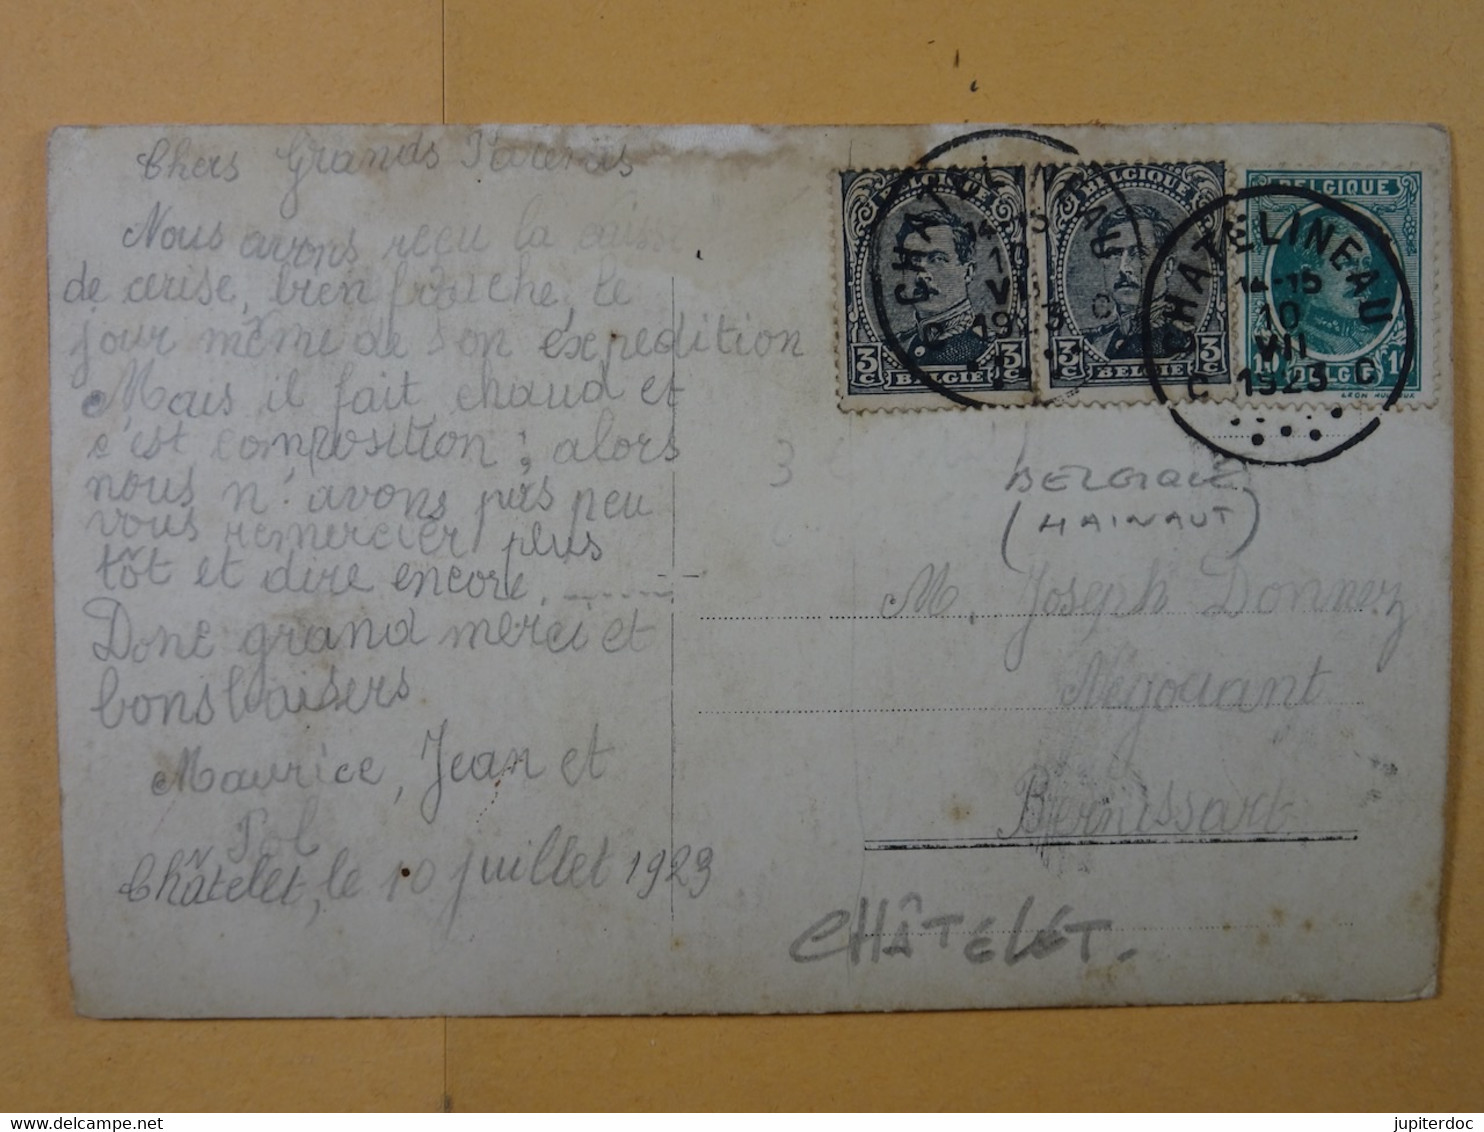 Chers Grands Parents
Nous avons reçu la caisse
de cerise, bien fraîche, le
jour même de son expedition
Mais il fait chaud et
c'est composition ; alors
nous n'avons pas peu
vous remercier plus
tôt et dire encore.
Donc grand merci et
bons baisers
Maurice, Jean et
Pol
Châtelet, le 10 juillet 1923
BELGIQUE
3c 3c
BELGIË
CHATELINEAU
14-15
1923
BELGIQUE
3c 3c
BELGIË
BELGIQUE
10 10
BELGIË
CHATELINEAU
14-15
10
VII
C 1923 C
3
BELGIQUE
(HAINAUT)
M. Joseph Donnez
Négociant
Bernissart
CHÂTELET.
delcampe.net
jupiterdoc